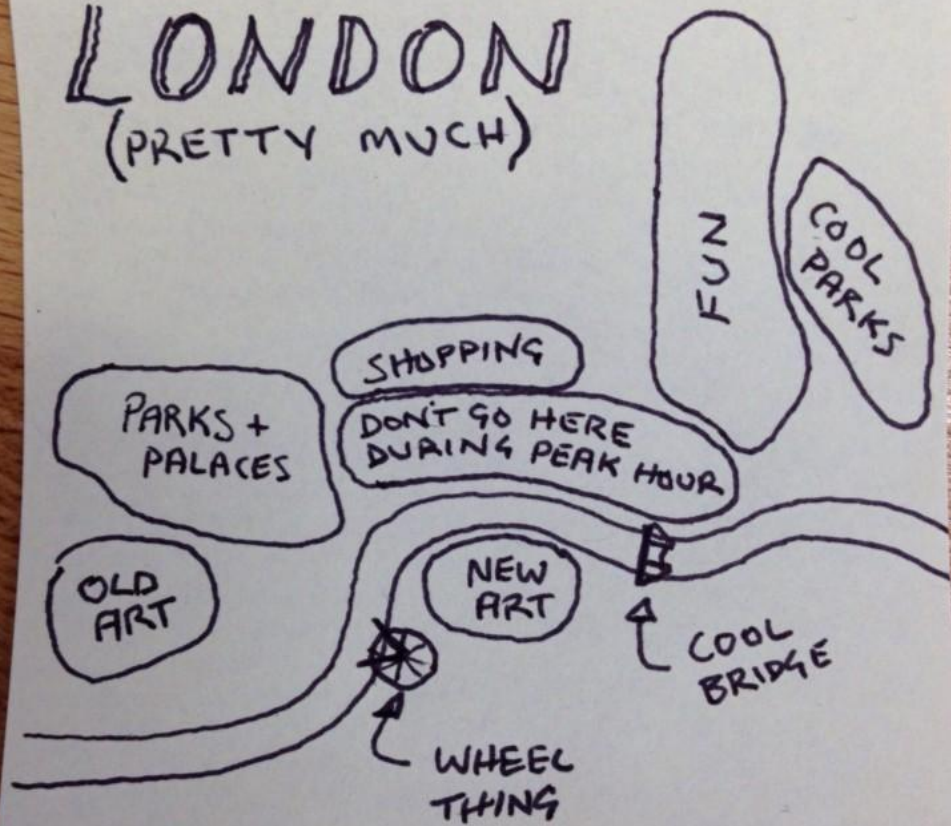 LONDON
(PRETTY MUCH)
FUN
COOL
PARKS
SHOPPING
PARKS +
PALACES
DON'T GO HERE
DURING PEAK HOUR
OLD
ART
NEW
ART
COOL
BRIDGE
WHEEL
THING